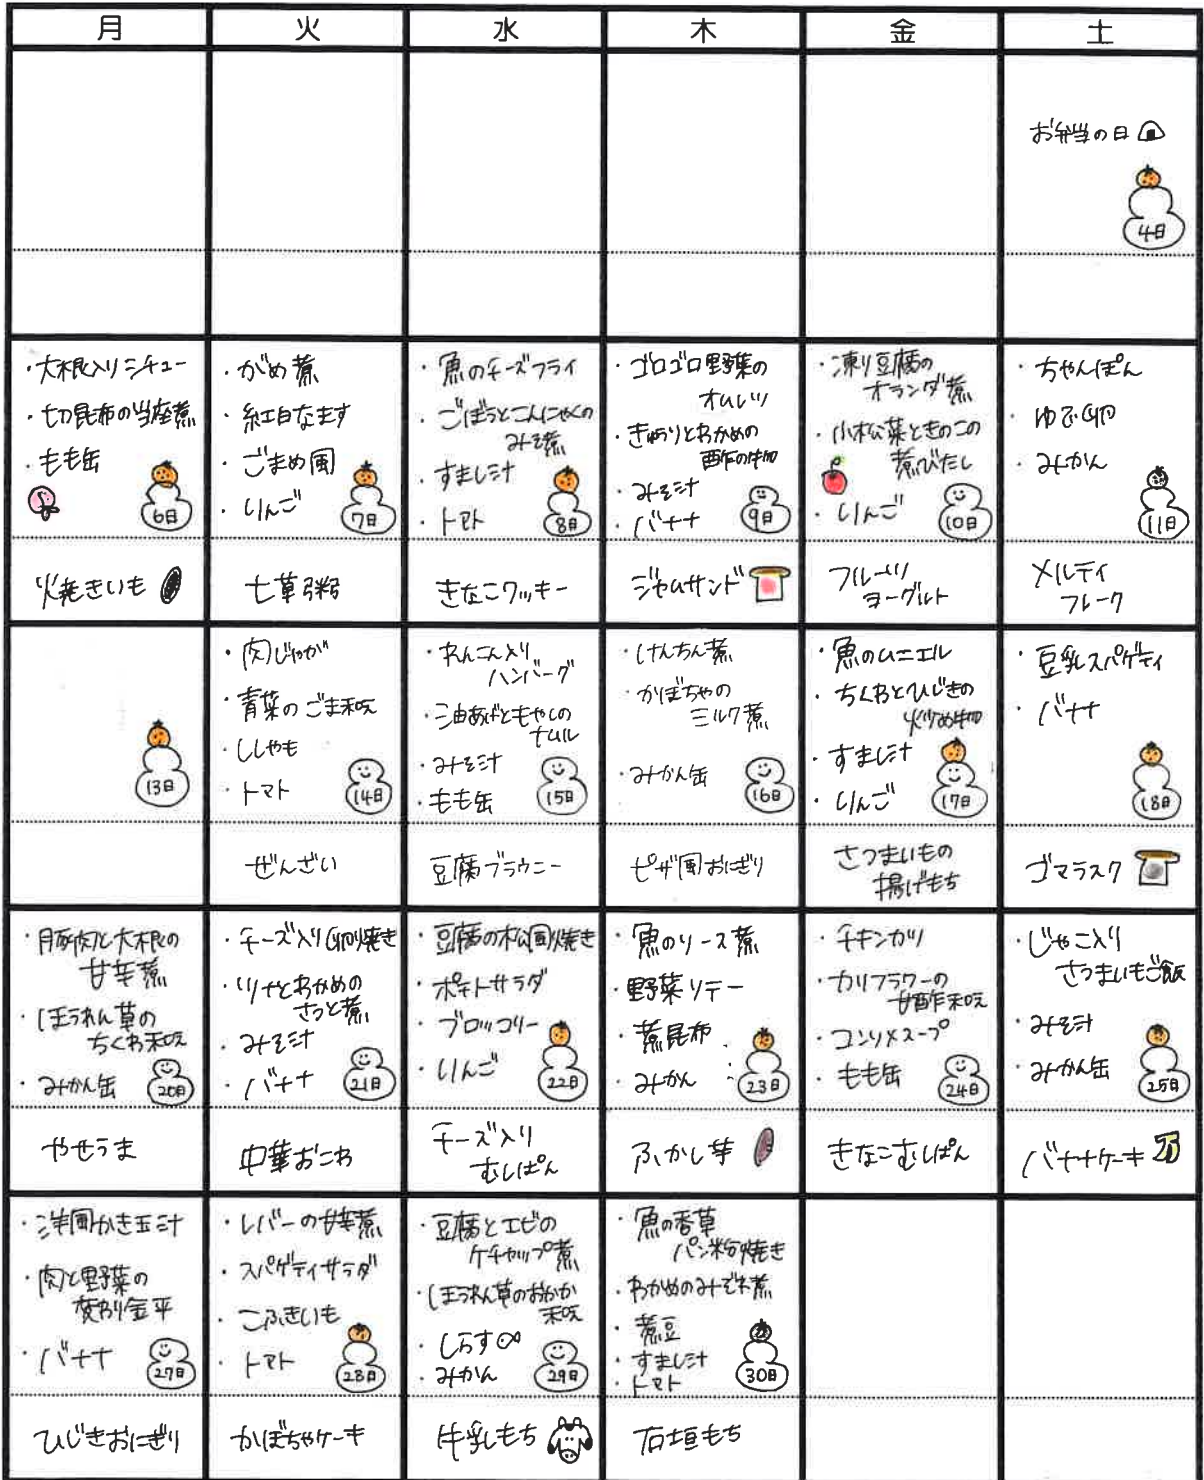 月 火 水 木 金 土
お弁当の日
4日
・大根入りシチュー
・切昆布の当座煮
・もも缶
6日
・がめ煮
・紅白なます
・ごまめ風
・りんご
7日
・魚のチーズフライ
・ごぼうとこんにゃくの
みそ煮
・すまし汁
・トマト
8日
・ゴロゴロ野菜の
オムレツ
・きゅうりとわかめの
酢の物
・みそ汁
・バナナ
9日
・凍り豆腐の
オランダ煮
・小松菜ときのこの
煮びたし
・りんご
10日
・ちゃんぽん
・ゆで卵
・みかん
11日
焼きいも
七草粥
きなこクッキー
ジャムサンド
フルーツ
ヨーグルト
メルティ
フレーク
13日
・肉じゃが
・青菜のごま和え
・ししゃも
・トマト
14日
・れんこん入り
ハンバーグ
・油あげともやしの
ナムル
・みそ汁
・もも缶
15日
・けんちん煮
・かぼちゃの
ミルク煮
・みかん缶
16日
・魚のムニエル
・ちくわとひじきの
炒め物
・すまし汁
・りんご
17日
・豆乳スパゲティ
・バナナ
18日
ぜんざい
豆腐ブラウニー
ピザ風おにぎり
さつまいもの
揚げもち
ゴマラスク
・豚肉と大根の
甘辛煮
・ほうれん草の
ちくわ和え
・みかん缶
20日
・チーズ入り卵焼き
・ツナとわかめの
さっと煮
・みそ汁
・バナナ
21日
・豆腐の松風焼き
・ポテトサラダ
・ブロッコリー
・りんご
22日
・魚のソース煮
・野菜ソテー
・煮昆布
・みかん
23日
・チキンカツ
・カリフラワーの
甘酢和え
・コンソメスープ
・もも缶
24日
・じゃこ入り
さつまいもご飯
・みそ汁
・みかん缶
25日
やせうま
中華おこわ
チーズ入り
むしぱん
ふかし芋
きなこむしぱん
バナナケーキ
・洋風かき玉汁
・肉と野菜の
変わり金平
・バナナ
27日
・レバーの甘辛煮
・スパゲティサラダ
・こふきいも
・トマト
28日
・豆腐とエビの
ケチャップ煮
・ほうれん草のおかか
和え
・しらす
・みかん
29日
・魚の香草
パン粉焼き
・わかめのみぞれ煮
・煮豆
・すまし汁
・トマト
30日
ひじきおにぎり
かぼちゃケーキ
牛乳もち
石垣もち